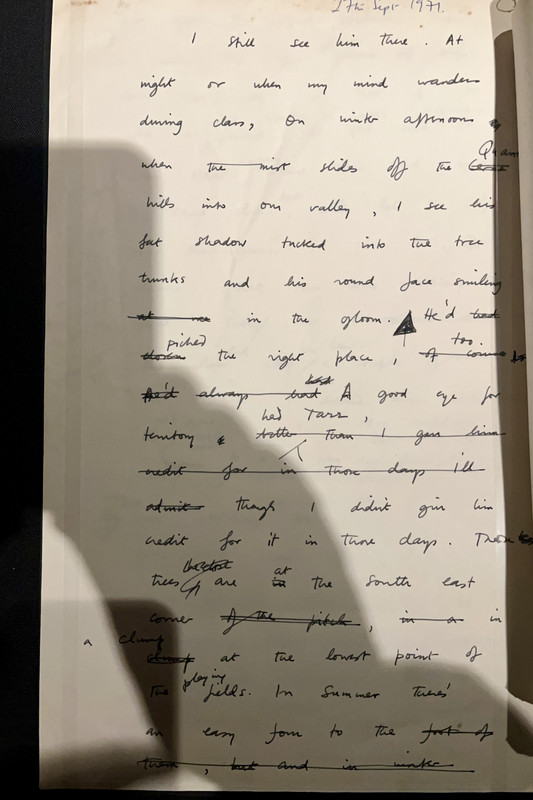 17th Sept 1971.
I still see him there. At
night or when my mind wanders
during class, On winter afternoons
Quan
when the mist slides off the
hills into our valley, I see his
fat shadow tucked into the tree
trunks and his round face smiling
at me in the gloom. He'd had
picked too.
chosen the right place, of course
He'd always had A good eye for
had Tarr,
territory better than I gave him
credit for in those days I'll
admit though I didn't give him
credit for it in those days. Those
at
trees are in the South east
corner of the pitch, in a in
a clump
clump at the lowest point of
playing
the fields. In Summer there's
an easy form to the foot of
them, but and in winter